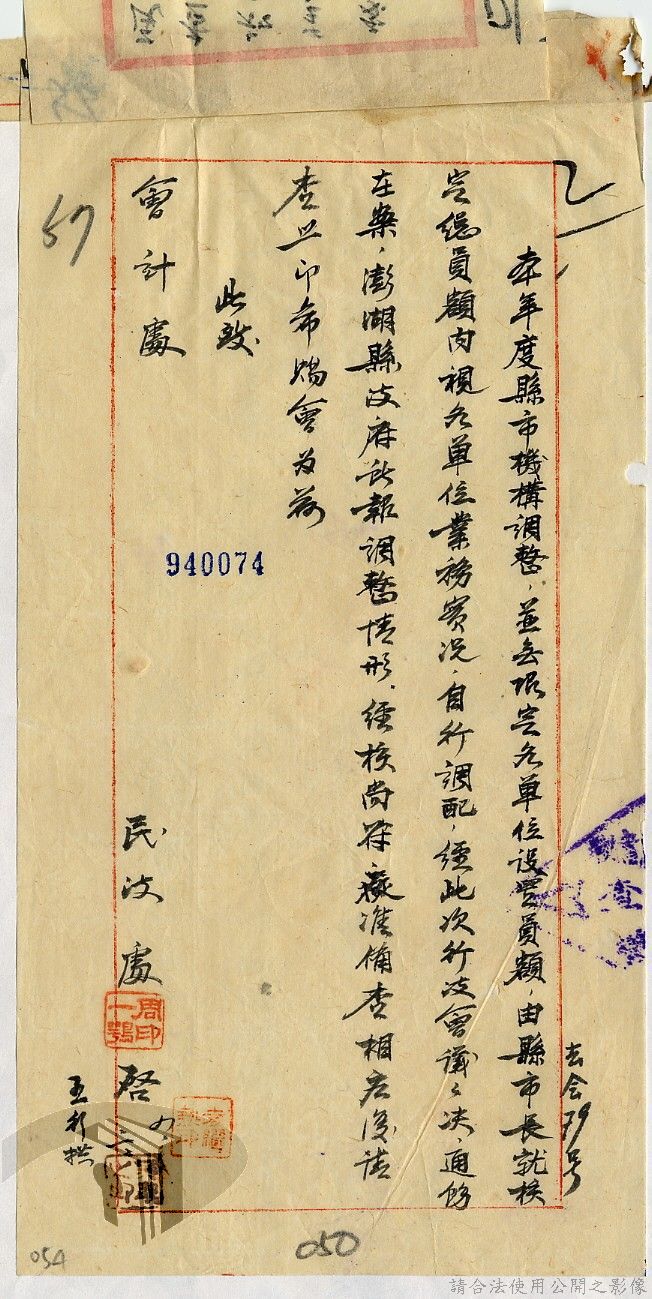 本年度縣市機構調整，並無限定各單位設置員額，由縣市長就核
定總員額內視各單位業務實況，自行調配，經此次行政會議議決，通飭
在案，澎湖縣政府所報調整情形，經核尚符，擬准備查，相應復請
查照印希賜會為荷
此致
會計處
民政處
啓
周一鶚印
去会79号
57
940074
050
054
請合法使用公開之影像